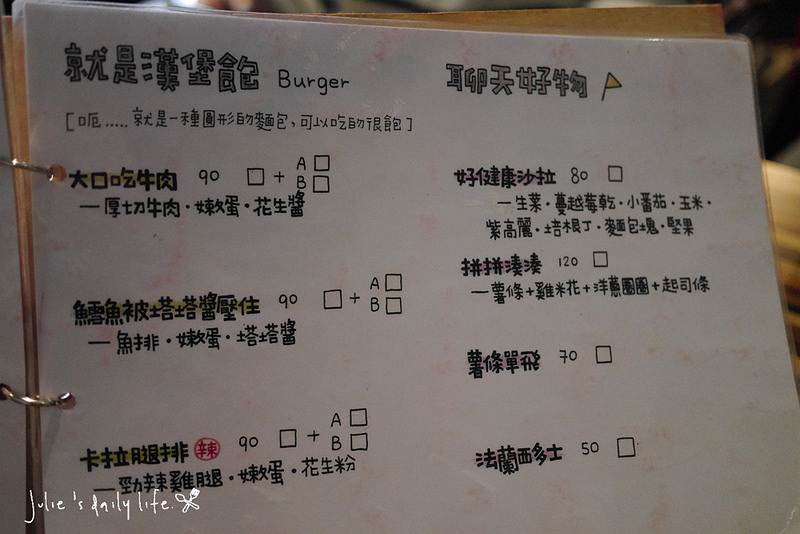 就是漢堡飽 Burger
[呃.....就是一種圓形的麵包,可以吃的很飽]
大口吃牛肉 90 □ + A □ B □
一厚切牛肉·嫩蛋·花生醬
鱈魚被塔塔醬壓住 90 □ + A □ B □
一魚排·嫩蛋·塔塔醬
卡拉腿排 辣 90 □ + A □ B □
一勁辣雞腿·嫩蛋·花生粉
聊天好物
好健康沙拉 80 □
一生菜·蔓越莓乾·小番茄·玉米·
紫高麗·培根丁·麵包塊·堅果
拼拼湊湊 120 □
一薯條+雞米花+洋蔥圈圈+起司條
薯條單飛 70 □
法蘭西多士 50 □
Julie's daily life.